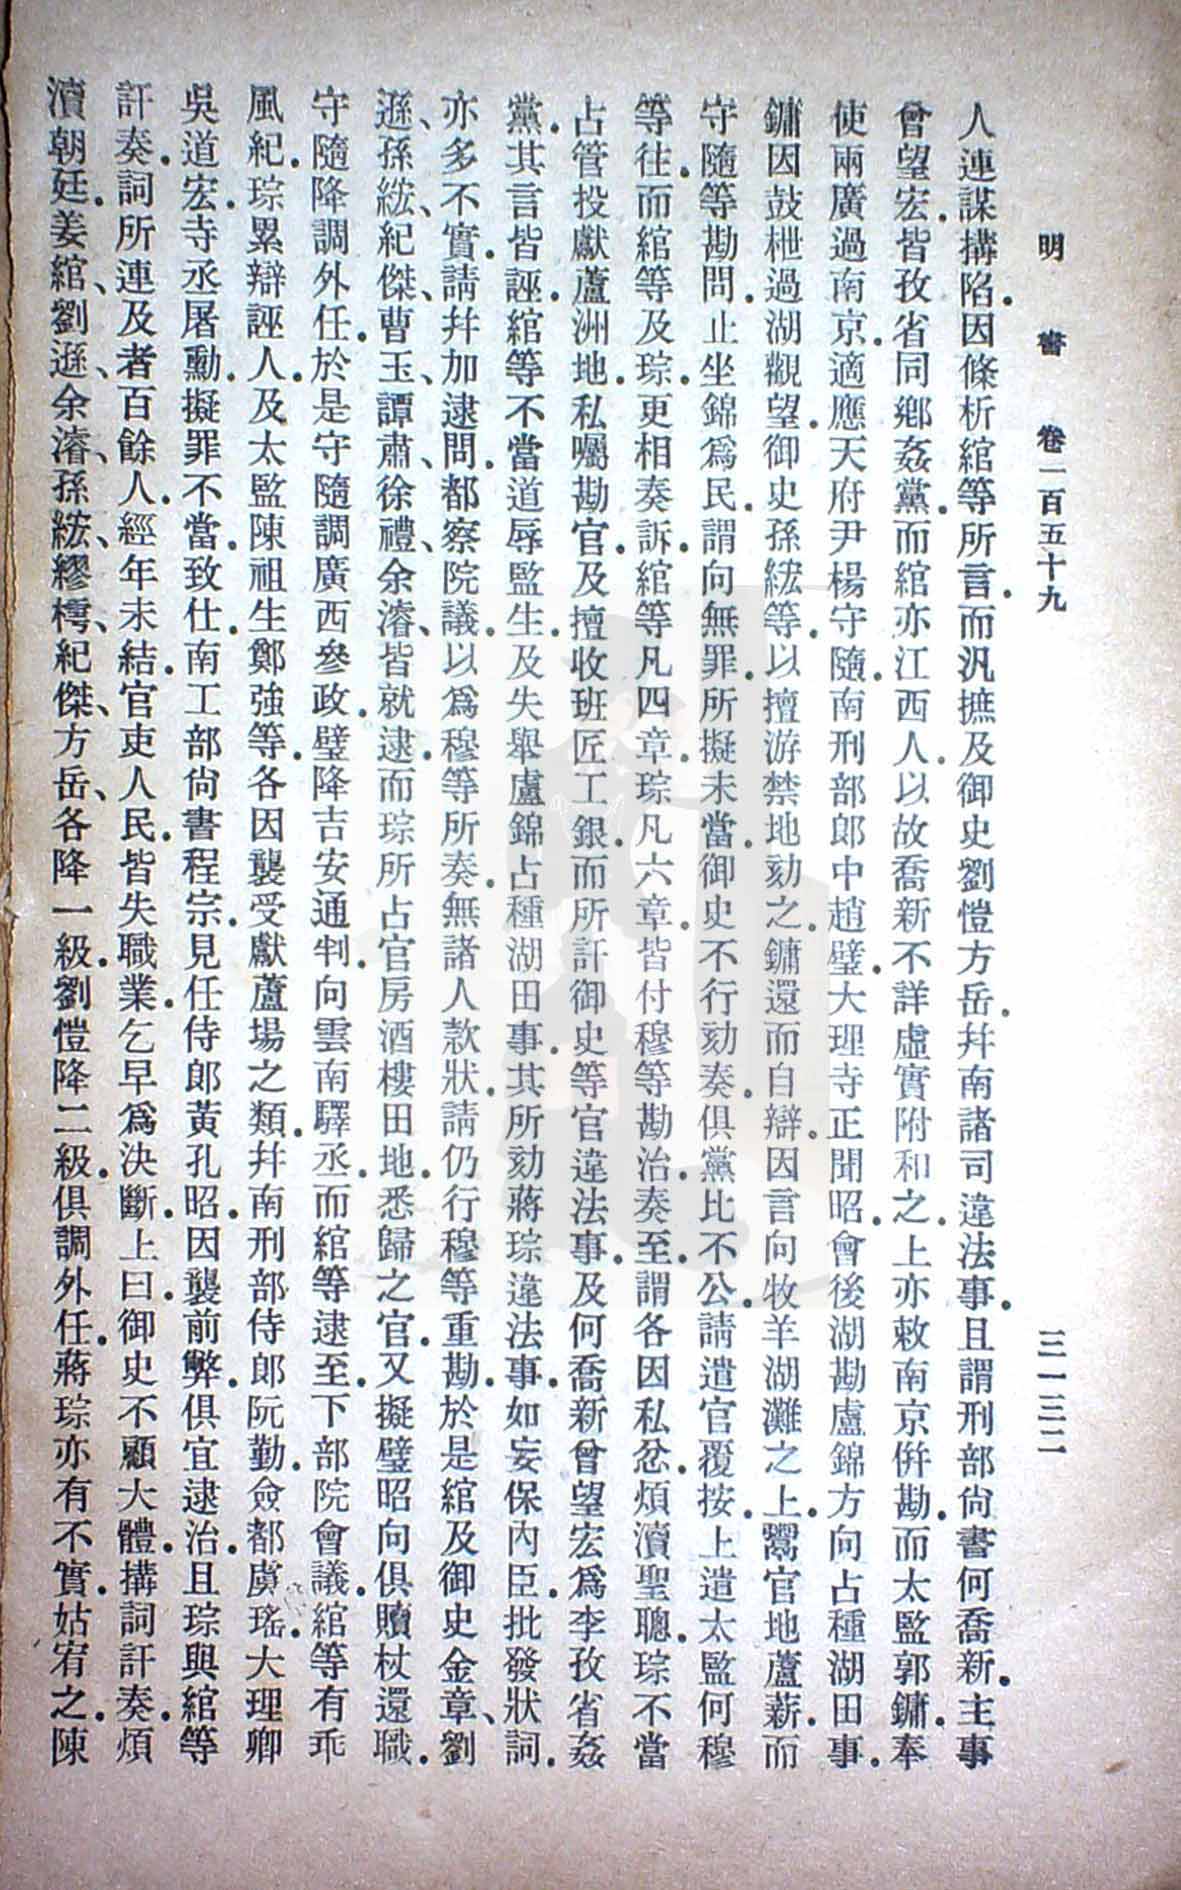 明書 卷一百五十九 三一三二
人連謀搆陷。因條析綰等所言。而汎摭及御史劉愷方岳。幷南諸司違法事。且謂刑部尙書何喬新。主事
曾望宏。皆孜省同鄕姦黨。而綰亦江西人。以故喬新不詳虛實附和之。上亦敕南京倂勘。而太監郭鏞。奉
使兩廣過南京。適應天府尹楊守隨。南刑部郞中趙璧。大理寺正聞昭。會後湖勘盧錦方向占種湖田事。
鏞因鼓枻過湖觀望。御史孫紘等。以擅游禁地劾之。鏞還而自辯。因言向牧羊湖灘之上。鬻官地蘆薪。而
守隨等勘問。止坐錦爲民。謂向無罪。所擬未當。御史不行劾奏。俱黨比不公。請遣官覆按。上遣太監何穆
等往。而綰等及琮。更相奏訴。綰等凡四章。琮凡六章。皆付穆等勘治。奏至。謂各因私忿。煩瀆聖聰。琮不當
占管投獻蘆洲地。私囑勘官。及擅收班匠工銀。而所訐御史等官違法事。及何喬新曾望宏爲李孜省姦
黨。其言皆誣。綰等不當道辱監生。及失舉盧錦占種湖田事。其所劾蔣琮違法事。如妄保內臣。批發狀詞。
亦多不實。請幷加逮問。都察院議。以爲穆等所奏。無諸人款狀。請仍行穆等重勘。於是綰及御史金章、劉
遜、孫紘、紀傑、曹玉、譚肅、徐禮、余濬、皆就逮。而琮所占官房酒樓田地。悉歸之官。又擬璧昭向俱贖杖還職。
守隨降調外任。於是守隨調廣西參政。璧降吉安通判。向雲南驛丞。而綰等逮至。下部院會議。綰等有乖
風紀。琮累辯誣人。及太監陳祖生鄭強等。各因襲受獻蘆場之類。幷南刑部侍郞阮勤。僉都虞瑤。大理卿
吳道宏。寺丞屠勳。擬罪不當。致仕。南工部尙書程宗。見任侍郞黃孔昭。因襲前弊。俱宜逮治。且琮與綰等
訐奏。詞所連及者百餘人。經年未結。官吏人民。皆失職業。乞早爲決斷。上曰。御史不顧大體。搆詞訐奏。煩
瀆朝廷。姜綰、劉遜、余濬、孫紘、繆樗、紀傑、方岳、各降一級。劉愷降二級。俱調外任。蔣琮亦有不實。姑宥之。陳